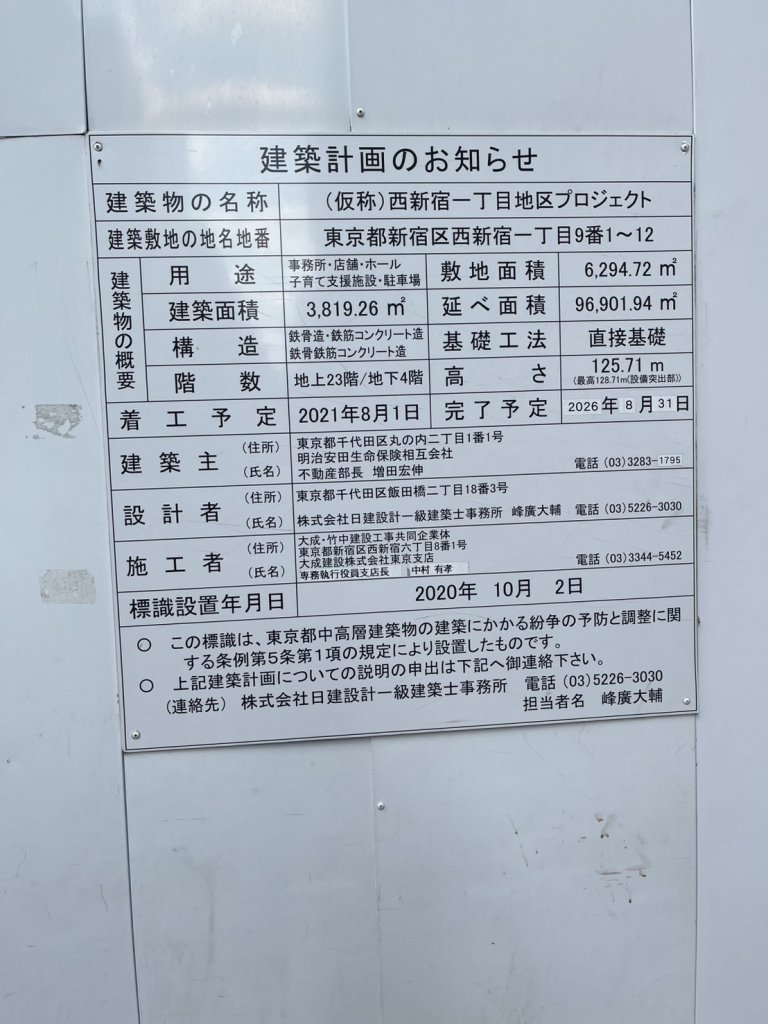 建築計画のお知らせ
建築物の名称 (仮称)西新宿一丁目地区プロジェクト
建築敷地の地名地番 東京都新宿区西新宿一丁目9番1〜12
建築物の概要
用途 事務所・店舗・ホール
子育て支援施設・駐車場
敷地面積 6,294.72 ㎡
建築面積 3,819.26 ㎡ 延べ面積 96,901.94 ㎡
構造 鉄骨造・鉄筋コンクリート造
鉄骨鉄筋コンクリート造
基礎工法 直接基礎
階数 地上23階/地下4階 高さ 125.71 m
(最高128.71m(設備突出部))
着工予定 2021年8月1日 完了予定 2026年8月31日
建築主 (住所) 東京都千代田区丸の内二丁目1番1号
明治安田生命保険相互会社
(氏名) 不動産部長 増田宏伸 電話 (03)3283-1795
設計者 (住所) 東京都千代田区飯田橋二丁目18番3号
(氏名) 株式会社日建設計一級建築士事務所 峰廣大輔 電話 (03)5226-3030
施工者 (住所) 大成・竹中建設工事共同企業体
東京都新宿区西新宿六丁目8番1号
大成建設株式会社東京支店
(氏名) 専務執行役員支店長 中村 有孝 電話 (03)3344-5452
標識設置年月日 2020年 10月 2日
○ この標識は、東京都中高層建築物の建築にかかる紛争の予防と調整に関
する条例第5条第1項の規定により設置したものです。
○ 上記建築計画についての説明の申出は下記へ御連絡下さい。
(連絡先) 株式会社日建設計一級建築士事務所 電話 (03)5226-3030
担当者名 峰廣大輔